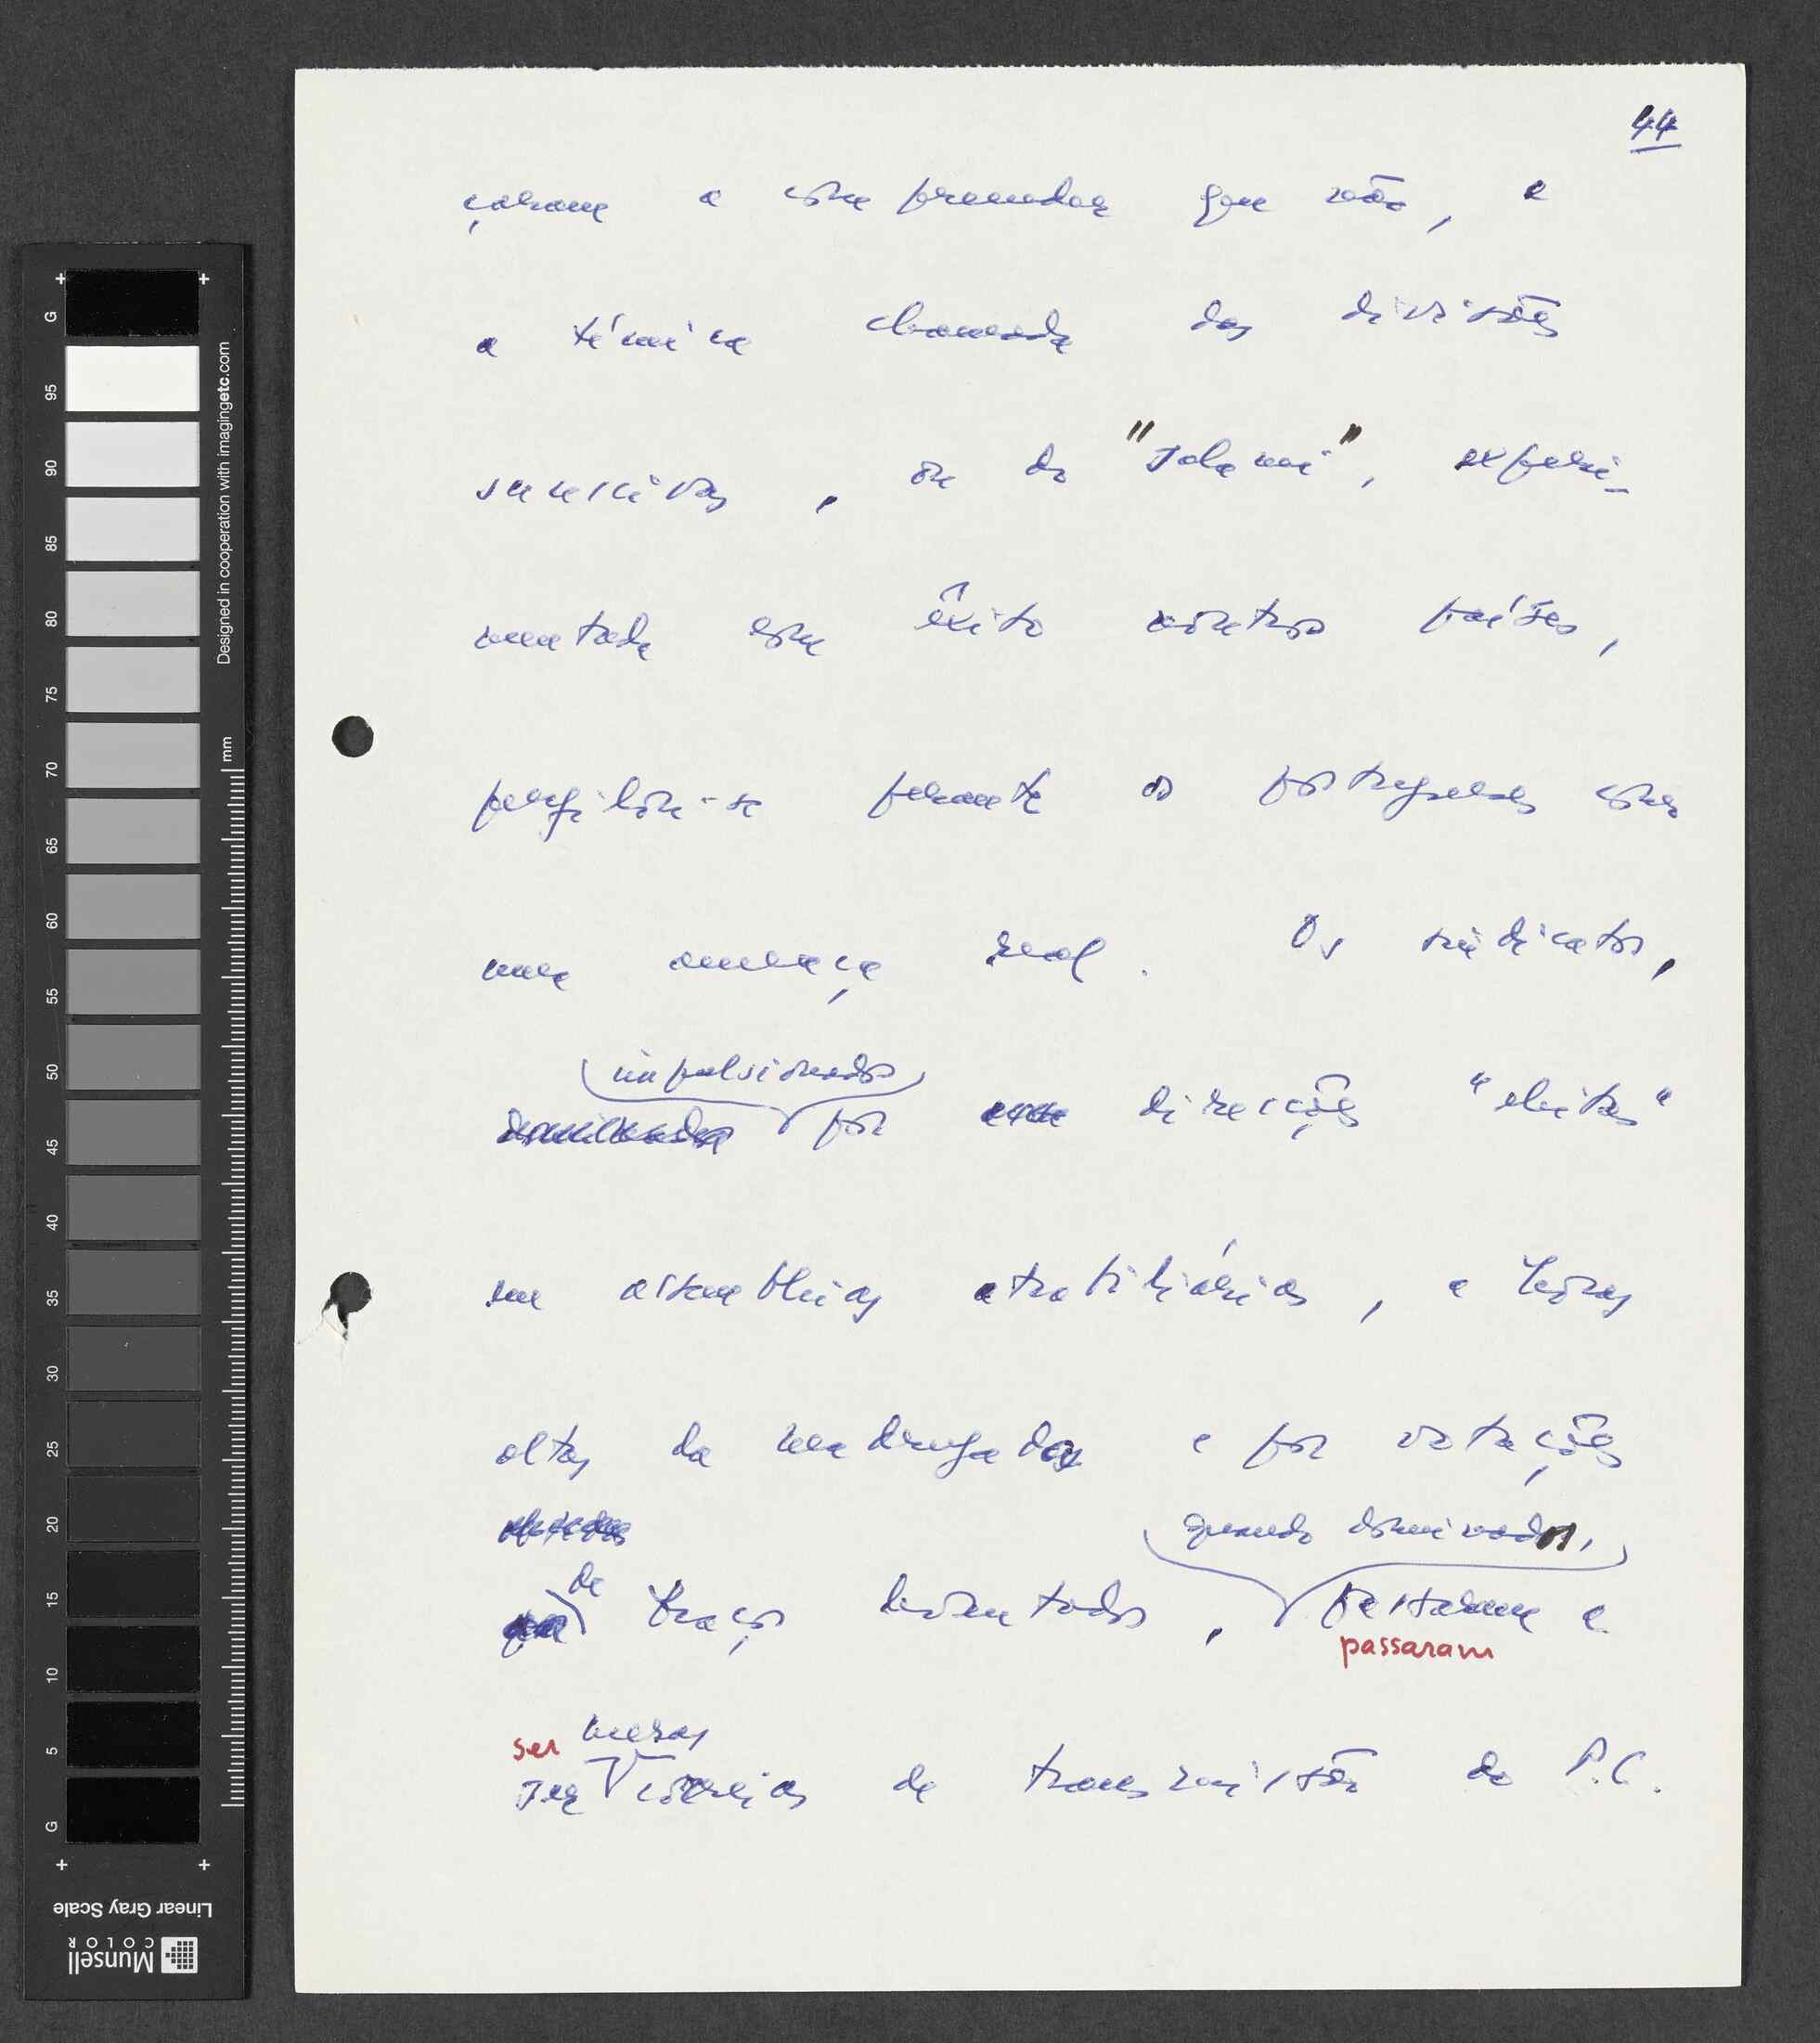 44
çaram a compreender que não, e
a técnica chamada das divisões
sucessivas, ou do "salami", experi-
mentada com êxito noutros países,
perfilou-se perante os portugueses como
uma ameaça real. Os sindicatos,
impulsionados
por direcções "eleitas"
em assembleias atrabiliárias, a horas
altas da madrugada e por votações
quando dominados,
de braços levantados, passaram a
passaram
ser meras
ser correias de transmissão do P.C.
G
95
90
85
80
75
70
65
60
55
50
45
40
35
30
25
20
15
10
5
G
Designed in cooperation with imagingetc.com
mm
Linear Gray Scale
Munsell
COLOR